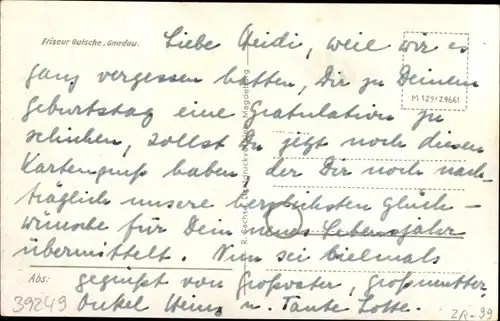 Friseur Gutsche, Gnadau.
Liebe Heidi, weil wir es
ganz vergessen hatten, Dir zu Deinem
M 129/Z9661
Geburtstag eine Gratulation zu
schicken, sollst Du jetzt noch diesen
Kartengruß haben der Dir noch nach-
träglich unsere herzlichsten Glück-
wünsche für Dein neues Lebensjahr
übermittelt. Nun sei vielmals
Abs: gegrüßt von Großvater, Großmutter,
Onkel Heinz u. Tante Lotte.
39249
ZR-99
Magdeburg